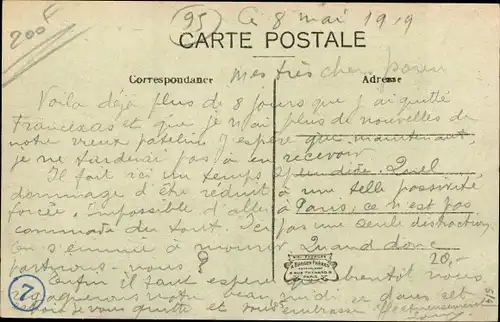 200 F
(95) Ce 8 mai 1919
CARTE POSTALE
Correspondance
Adresse
mes très chers
Voila déjà plus de 8 jours que j'ai quitté
et que je n'ai plus de nouvelles de
notre vieux patelin. J'espère que maintenant
je ne tarderai pas à en recevoir
Il fait ici un temps splendide. Quel
dommage d'être réduit à une telle passivité
forcée, impossible d'aller à Paris, ce n'est pas
commode du tout. Ici pas une seule distraction
on s'ennuie à mourir. Quand donc
partirons-nous? 20,-
Enfin il faut espérer que bientôt nous
regagnerons notre beau midi et dans cet
espoir je vous quitte et vous embrasse affectueusement
7